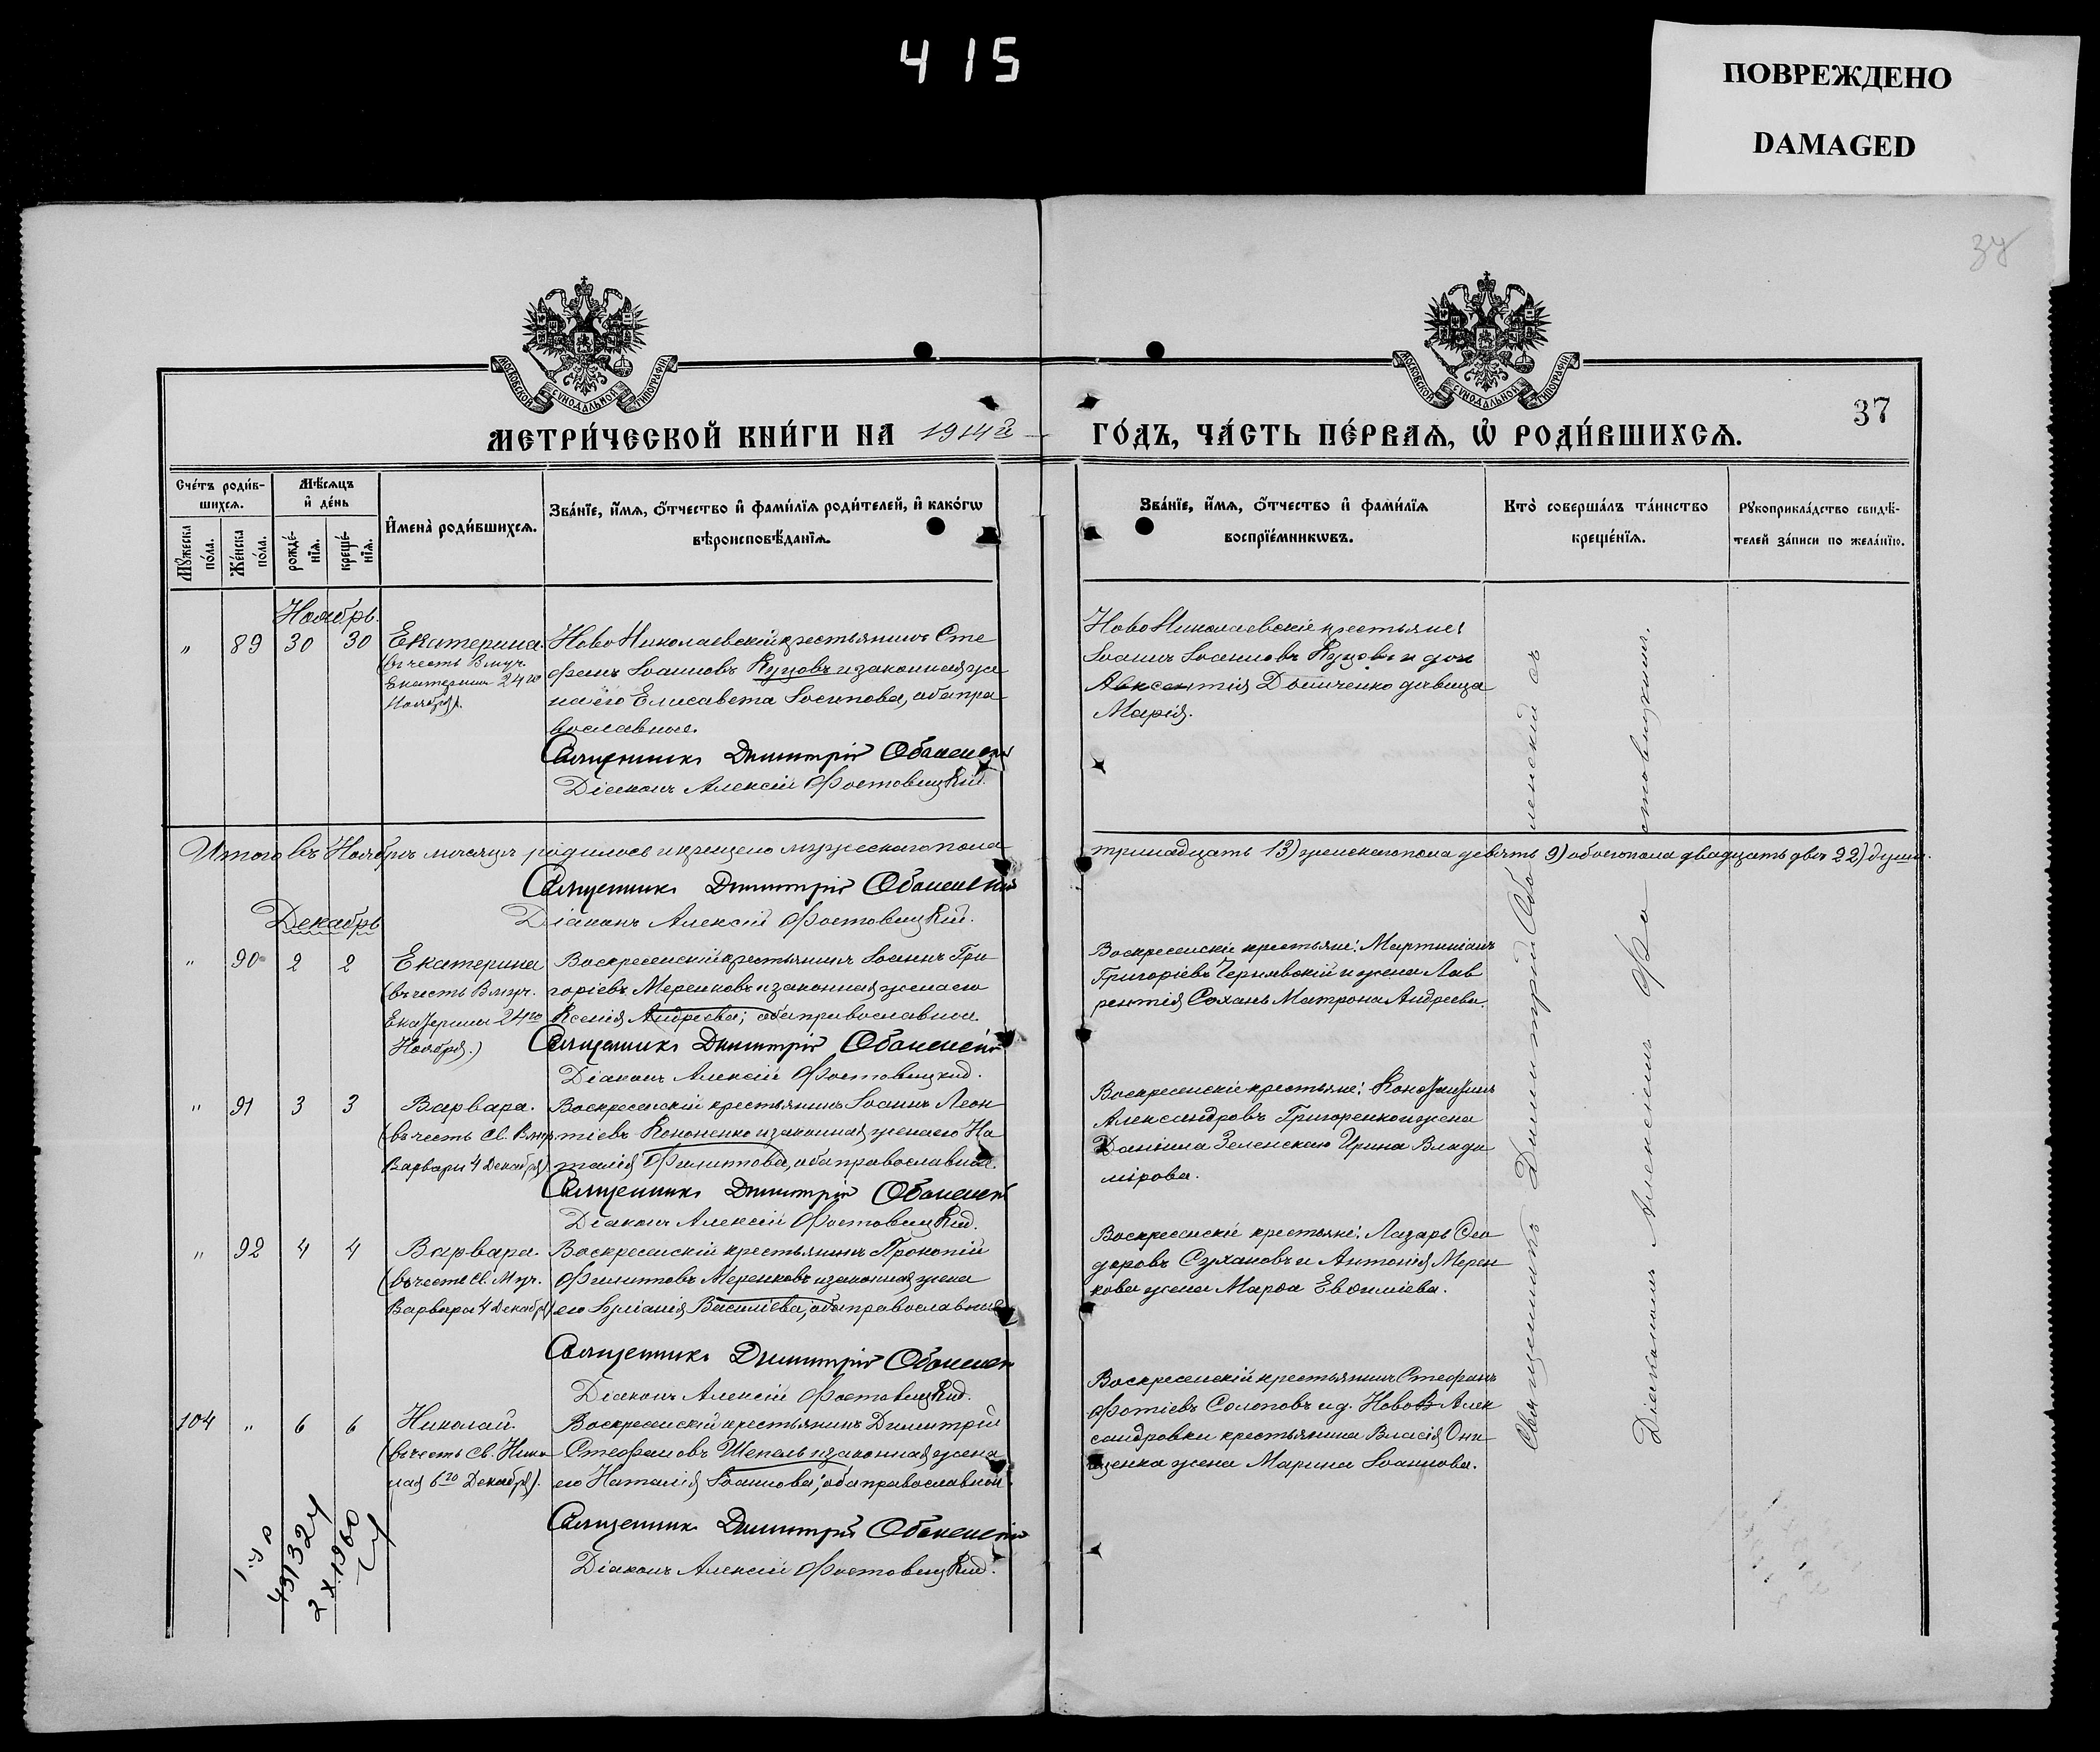 415
ПОВРЕЖДЕНО
DAMAGED
37
МОСКОВСКОЙ СУНОДАЛЬНОЙ ТИПОГРАФІИ
МОСКОВСКОЙ СУНОДАЛЬНОЙ ТИПОГРАФІИ
37
МЕТРИ́ЧЕСКОЙ КНИ́ГИ НА 1914й ГО́ДЪ, ЧА́СТЬ ПЕ́РВАѦ, Ѽ РОДИ́ВШИХСѦ.
Сче́тъ роди́в-
шихсѧ.
Мꙋжеска по́ла.
Же́нска по́ла.
Мѣ́сѧцъ
и҆ де́нь
рожде́-нїѧ.
креще́-нїѧ.
И҆мена̀ роди́вшихсѧ.
Зва́нїе, и҆́мѧ, ѻ҆́тчество и҆ фами́лїѧ роди́телей, и҆ како́гѡ
вѣроисповѣ́данїѧ.
Зва́нїе, и҆́мѧ, ѻ҆́тчество и҆ фами́лїѧ
воспрїе́мникѡвъ.
Кто̀ соверша́лъ та́инство
креще́нїѧ.
Рꙋкоприкла́дство свидѣ́-
телей за́писи по жела́нїю.
Ноябрь.
" 89 30 30 Екатерина.
(въ честь Вмуч.
Екатерины 24го
Ноября).
Ново Николаевскій крестьянинъ Сте
фанъ Іоанновъ Куцовъ и законная же
на его Елисавета Іосипова, оба пра
вославные.
Священникъ Димитрій Оболенскій
Діаконъ Алексій Фостовицкій.
Ново Николаевскіе крестьяне:
Іоаннъ Іоанновъ Куцовъ и дочь
Авксентія Дьяченко дѣвица
Марія.
Итого въ Ноябрѣ мѣсяцѣ родилось и крещено мужескаго пола
тринадцать 13) женскаго пола девять 9) обоего пола двадцать двѣ 22) души.
Священникъ Димитрій Оболенскій
Діаконъ Алексій Фостовицкій.
Декабрь
" 90 2 2 Екатерина
(въ честь Вмуч.
Екатерины 24го
Ноября.)
Воскресенскій крестьянинъ Іоаннъ Гри
горіевъ Меренковъ и законная жена его
Ксенія Андреева; оба православные.
Священникъ Димитрій Оболенскій
Діаконъ Алексій Фостовицкій.
Воскресенскіе крестьяне: Мартиніанъ
Григоріевъ Чернявскій и жена Лав
рентія Сохань Матрона Андреева.
" 91 3 3 Варвара.
(въ честь Св. Вмуч.
Варвары 4 Декабря)
Воскресенскій крестьянинъ Іоаннъ Леон
тіевъ Кононенко и законная жена его На
талія Филиппова, оба православные.
Священникъ Димитрій Оболенскій
Діаконъ Алексій Фостовицкій.
Воскресенскіе крестьяне:
Александровъ Григоренко и жена
Даніила Зеленскаго Ирина Влади
мірова.
" 92 4 4 Варвара.
(въ честь Св. Муч.
Варвары 4 Декабря)
Воскресенскій крестьянинъ Прокопій
Филипповъ Меренковъ и законная жена
его Іуліанія Василіева, оба православные
Священникъ Димитрій Оболенскій
Діаконъ Алексій Фостовицкій.
Воскресенскіе крестьяне: Лазарь Ѳео
доровъ Сухановъ и Антонія Мерен
кова жена Марѳа Евѳиміева.
104 " 6 6 Николай.
(въ честь Св. Нико
лая 6го Декабря).
Воскресенскій крестьянинъ Димитрій
Стефановъ Шепель и законная жена
его Наталія Іоаннова; оба православные.
Священникъ Димитрій Оболенскій
Діаконъ Алексій Фостовицкій.
Воскресенскій крестьянинъ Стефанъ
Фотіевъ Солоповъ и д. Ново Алек
сандровки крестьянина Власія Они
щенка жена Марина Іоаннова.
Священникъ Димитрій Оболенскій съ
Діакономъ Алексіемъ Фостовицкимъ.
431324
2 X.1960